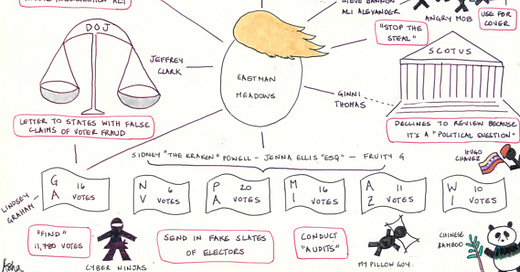 ALI ALEXANDER
ANGRY MOB
USE FOR
COVER
"STOP THE
STEAL"
DOJ
SCOTUS
JEFFREY
CLARK
EASTMAN
MEADOWS
GINNI
THOMAS
LETTER TO STATES WITH FALSE
CLAIMS OF VOTER FRAUD
DECLINES TO REVIEW BECAUSE
IT'S A "POLITICAL QUESTION"
SIDNEY "THE KRAKEN" POWELL - JENNA ELLIS "ESQ" - FRUITY G
HUGO
CHAVEZ
LINDSEY
GRAHAM
GA 16 VOTES
NV 6 VOTES
PA 20 VOTES
MI 16 VOTES
AZ 11 VOTES
WI 10 VOTES
"FIND"
11,780 VOTES
CYBER NINJAS
SEND IN FAKE SLATES
OF ELECTORS
CONDUCT
"AUDITS"
MY PILLOW GUY
CHINESE
BAMBOO
Asha